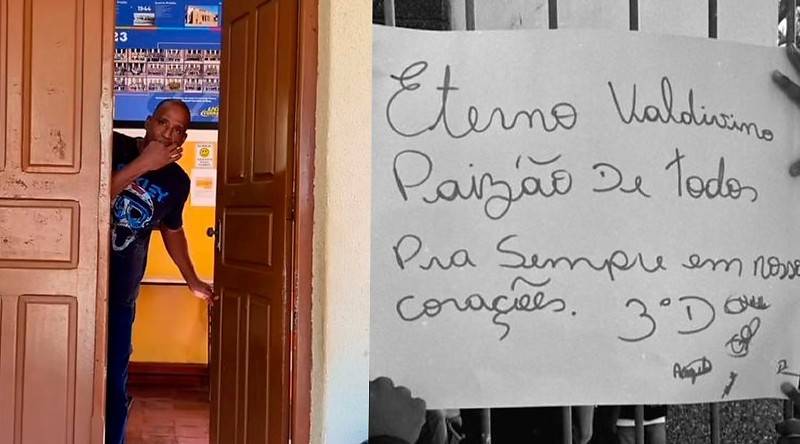 1944
23
Eterno Valdivino
Paizão De Todos
Pra Sempre em nosso
corações. 3ºD